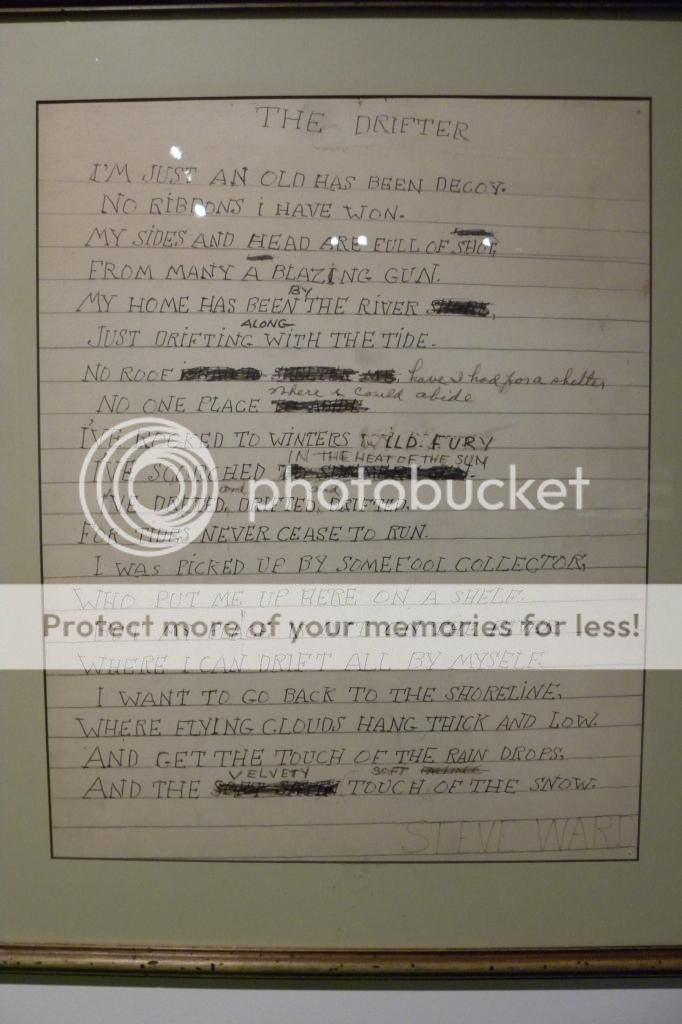 THE DRIFTER
I'M JUST AN OLD HAS BEEN DECOY.
NO RIBBONS I HAVE WON.
MY SIDES AND HEAD ARE FULL OF SHOT,
FROM MANY A BLAZING GUN.
MY HOME HAS BEEN BY THE RIVER
JUST DRIFTING ALONG WITH THE TIDE.
NO ROOF have I had for a shelter,
NO ONE PLACE where I could abide
I'VE ROCKED TO WINTERS WILD FURY
I'VE SCORCHED IN THE HEAT OF THE SUN
I'VE DRIFTED, and DRIFTED, and DRIFTED.
FOR TIDES NEVER CEASE TO RUN.
photobucket
I WAS PICKED UP BY SOMEFOOL COLLECTOR,
WHO PUT ME UP HERE ON A SHELF.
Protect more of your memories for less!
WHERE I CAN DRIFT ALL BY MYSELF.
I WANT TO GO BACK TO THE SHORELINE,
WHERE FLYING CLOUDS HANG THICK AND LOW.
AND GET THE TOUCH OF THE RAIN DROPS,
AND THE VELVETY SOFT TOUCH OF THE SNOW.
STEVE WARD